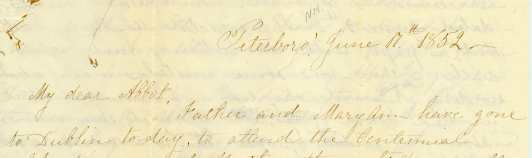 N.H.
Peterboro' June 17th 1852
My dear Abbot,
Father and Mary Ann have gone
to Dublin to day, to attend the Centennial